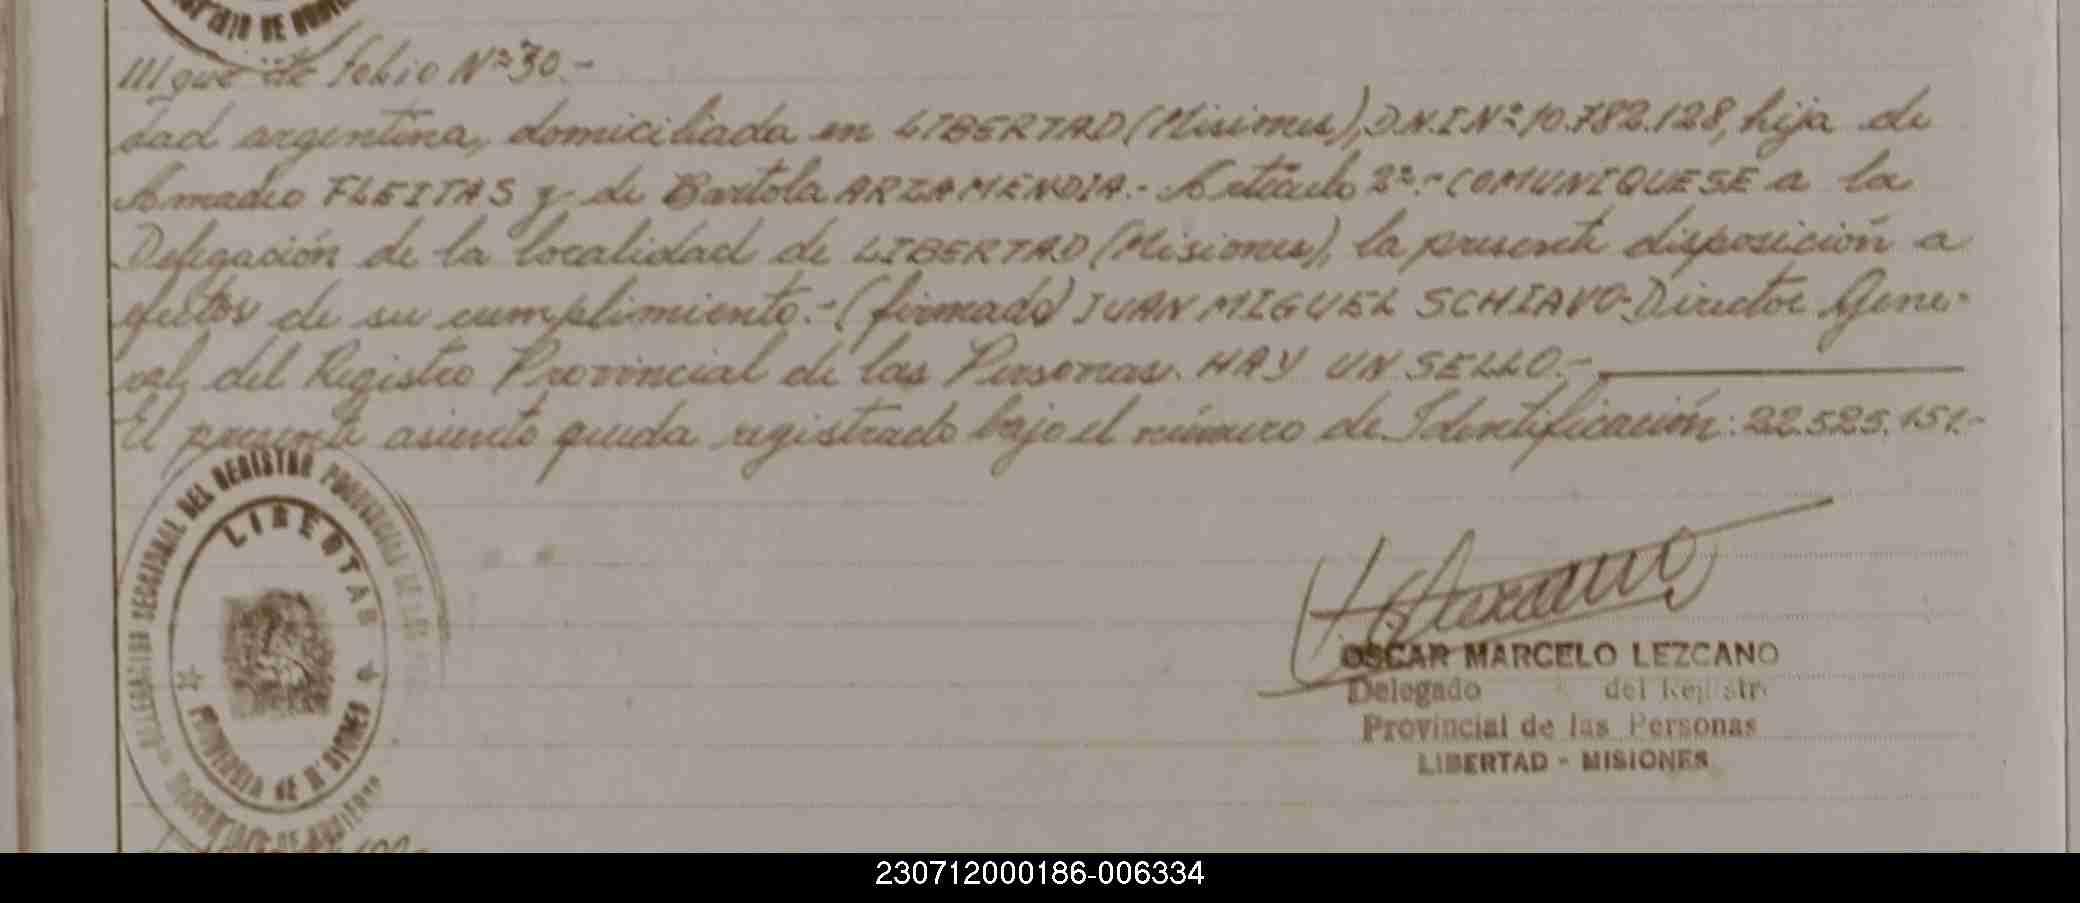 III que de folio Nº 30.-
dad argentina, domiciliada en LIBERTAD (Misiones), D.N.I Nº 10.782.128, hija de
Amadeo FLEITAS y de Bartola ARZAMENDIA.- Artículo 2º.- COMUNIQUESE a la
Delegación de la localidad de LIBERTAD (Misiones), la presente disposición a
efectos de su cumplimiento.- (firmado) JUAN MIGUEL SCHIAVO- Director Gene-
ral, del Registro Provincial de las Personas. HAY UN SELLO.-
El presente asiento queda registrado bajo el número de Identificación: 22.525.151.-
DELEGACION SECCIONAL DEL REGISTRO PROVINCIAL DE LAS
LIBERTAD
PROVINCIA DE MISIONES
OSCAR MARCELO LEZCANO
Delegado del Registr
Provincial de las Personas
LIBERTAD - MISIONES
230712000186-006334